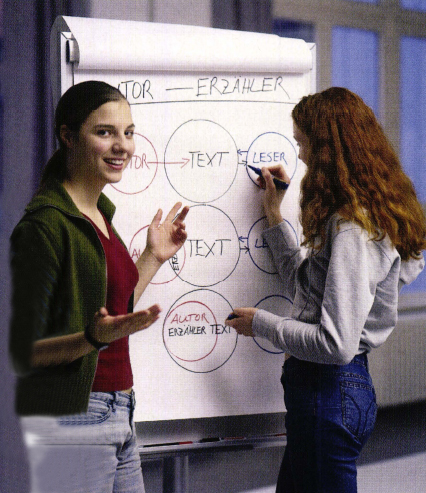 TOR — ERZÄHLER
TOR → TEXT LESER
AU ERZ TEXT LE
AUTOR
ERZÄHLER TEXT